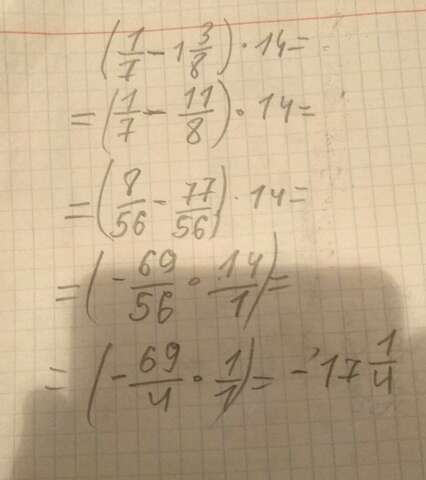 (1/7 - 1 3/8) · 14 =
= (1/7 - 11/8) · 14 =
= (8/56 - 77/56) · 14 =
= (- 69/56 · 14/1) =
= (- 69/4 · 1/1) = - 17 1/4